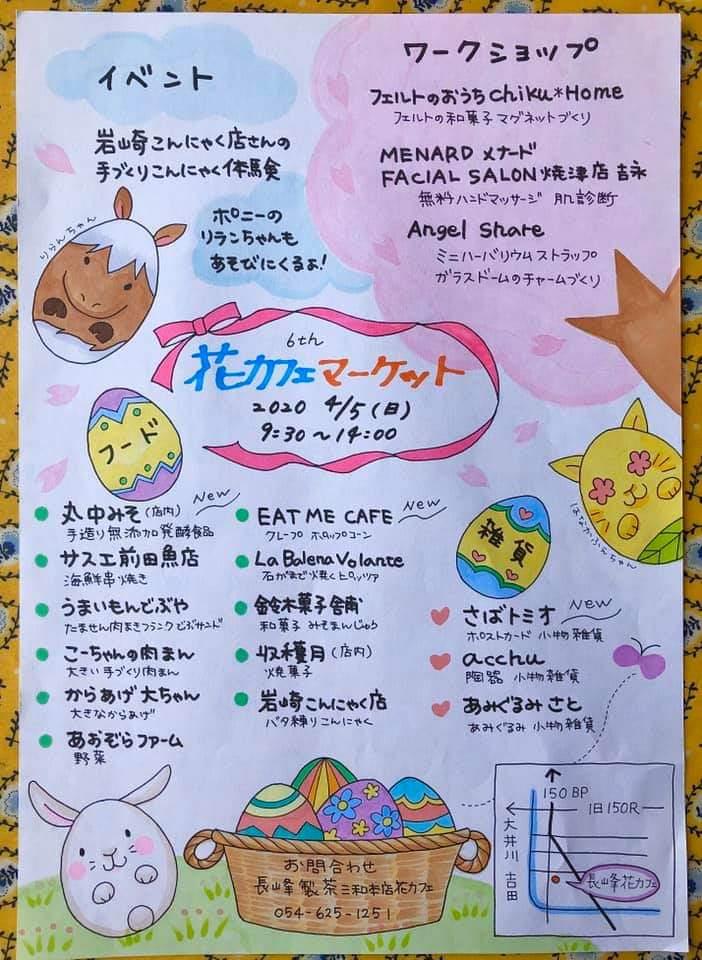 イベント
岩崎こんにゃく店さんの
手づくりこんにゃく体験
ポニーの
リランちゃんも
あそびにくるよ!
りらんちゃん
ワークショップ
フェルトのおうちchiku*Home
フェルトの和菓子マグネットづくり
MENARD メナード
FACIAL SALON 焼津店 吉永
無料ハンドマッサージ 肌診断
Angel Share
ミニハーバリウムストラップ
ガラスドームのチャームづくり
6th
花カフェマーケット
2020 4/5(日)
9:30~14:00
フード
丸中みそ(店内) New
手造り無添加発酵食品
サスエ前田魚店
海鮮串焼き
うまいもんどぶや
たません肉まきフランクどぶサンド
こーちゃんの肉まん
大きい手づくり肉まん
からあげ大ちゃん
大きなからあげ
あおぞらファーム
野菜
EAT ME CAFE New
クレープ ポップコーン
La Balena Volante
石がまで焼くピッツァ
鈴木菓子舗
和菓子 みそまんじゅう
収穫月(店内)
焼菓子
岩崎こんにゃく店
バタ練りこんにゃく
はなかふぇちゃん
雑貨
さばトミオ New
ポストカード 小物雑貨
acchu
陶器 小物雑貨
あみぐるみ さと
あみぐるみ 小物雑貨
お問合わせ
長峰製茶三和本店花カフェ
054-625-1251
150BP
旧150R
大井川 吉田
長峰花カフェ